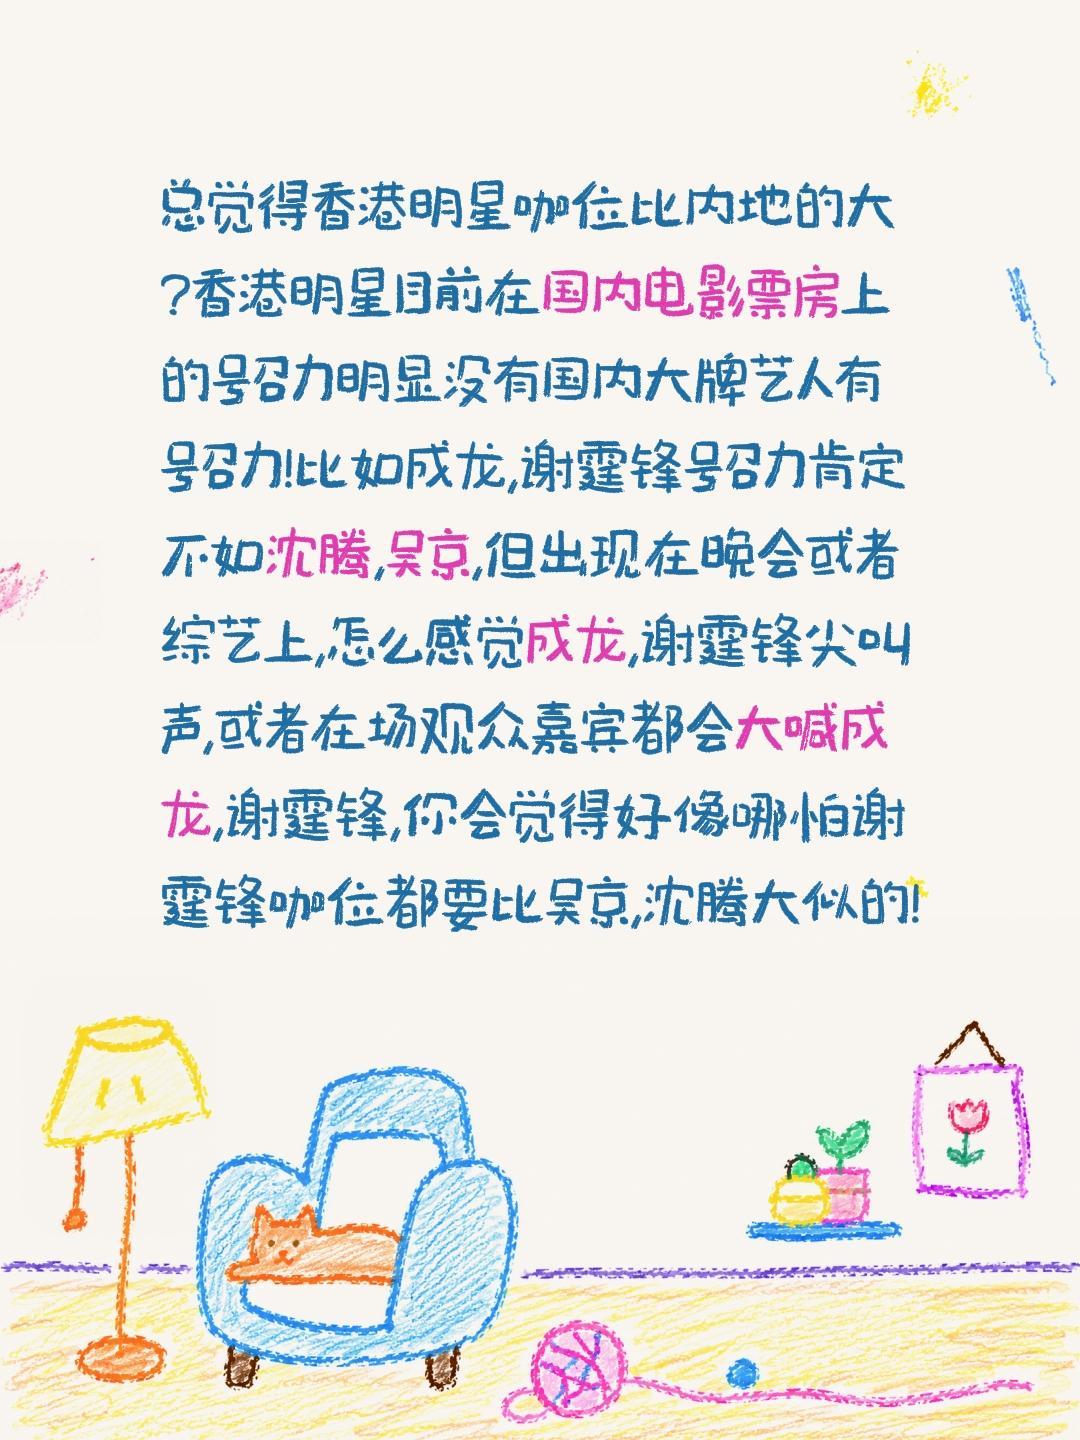 总觉得香港明星咖位比内地的大
?香港明星目前在国内电影票房上
的号召力明显没有国内大牌艺人有
号召力!比如成龙,谢霆锋号召力肯定
不如沈腾,吴京,但出现在晚会或者
综艺上,怎么感觉成龙,谢霆锋尖叫
声,或者在场观众嘉宾都会大喊成
龙,谢霆锋,你会觉得好像哪怕谢
霆锋咖位都要比吴京,沈腾大似的!